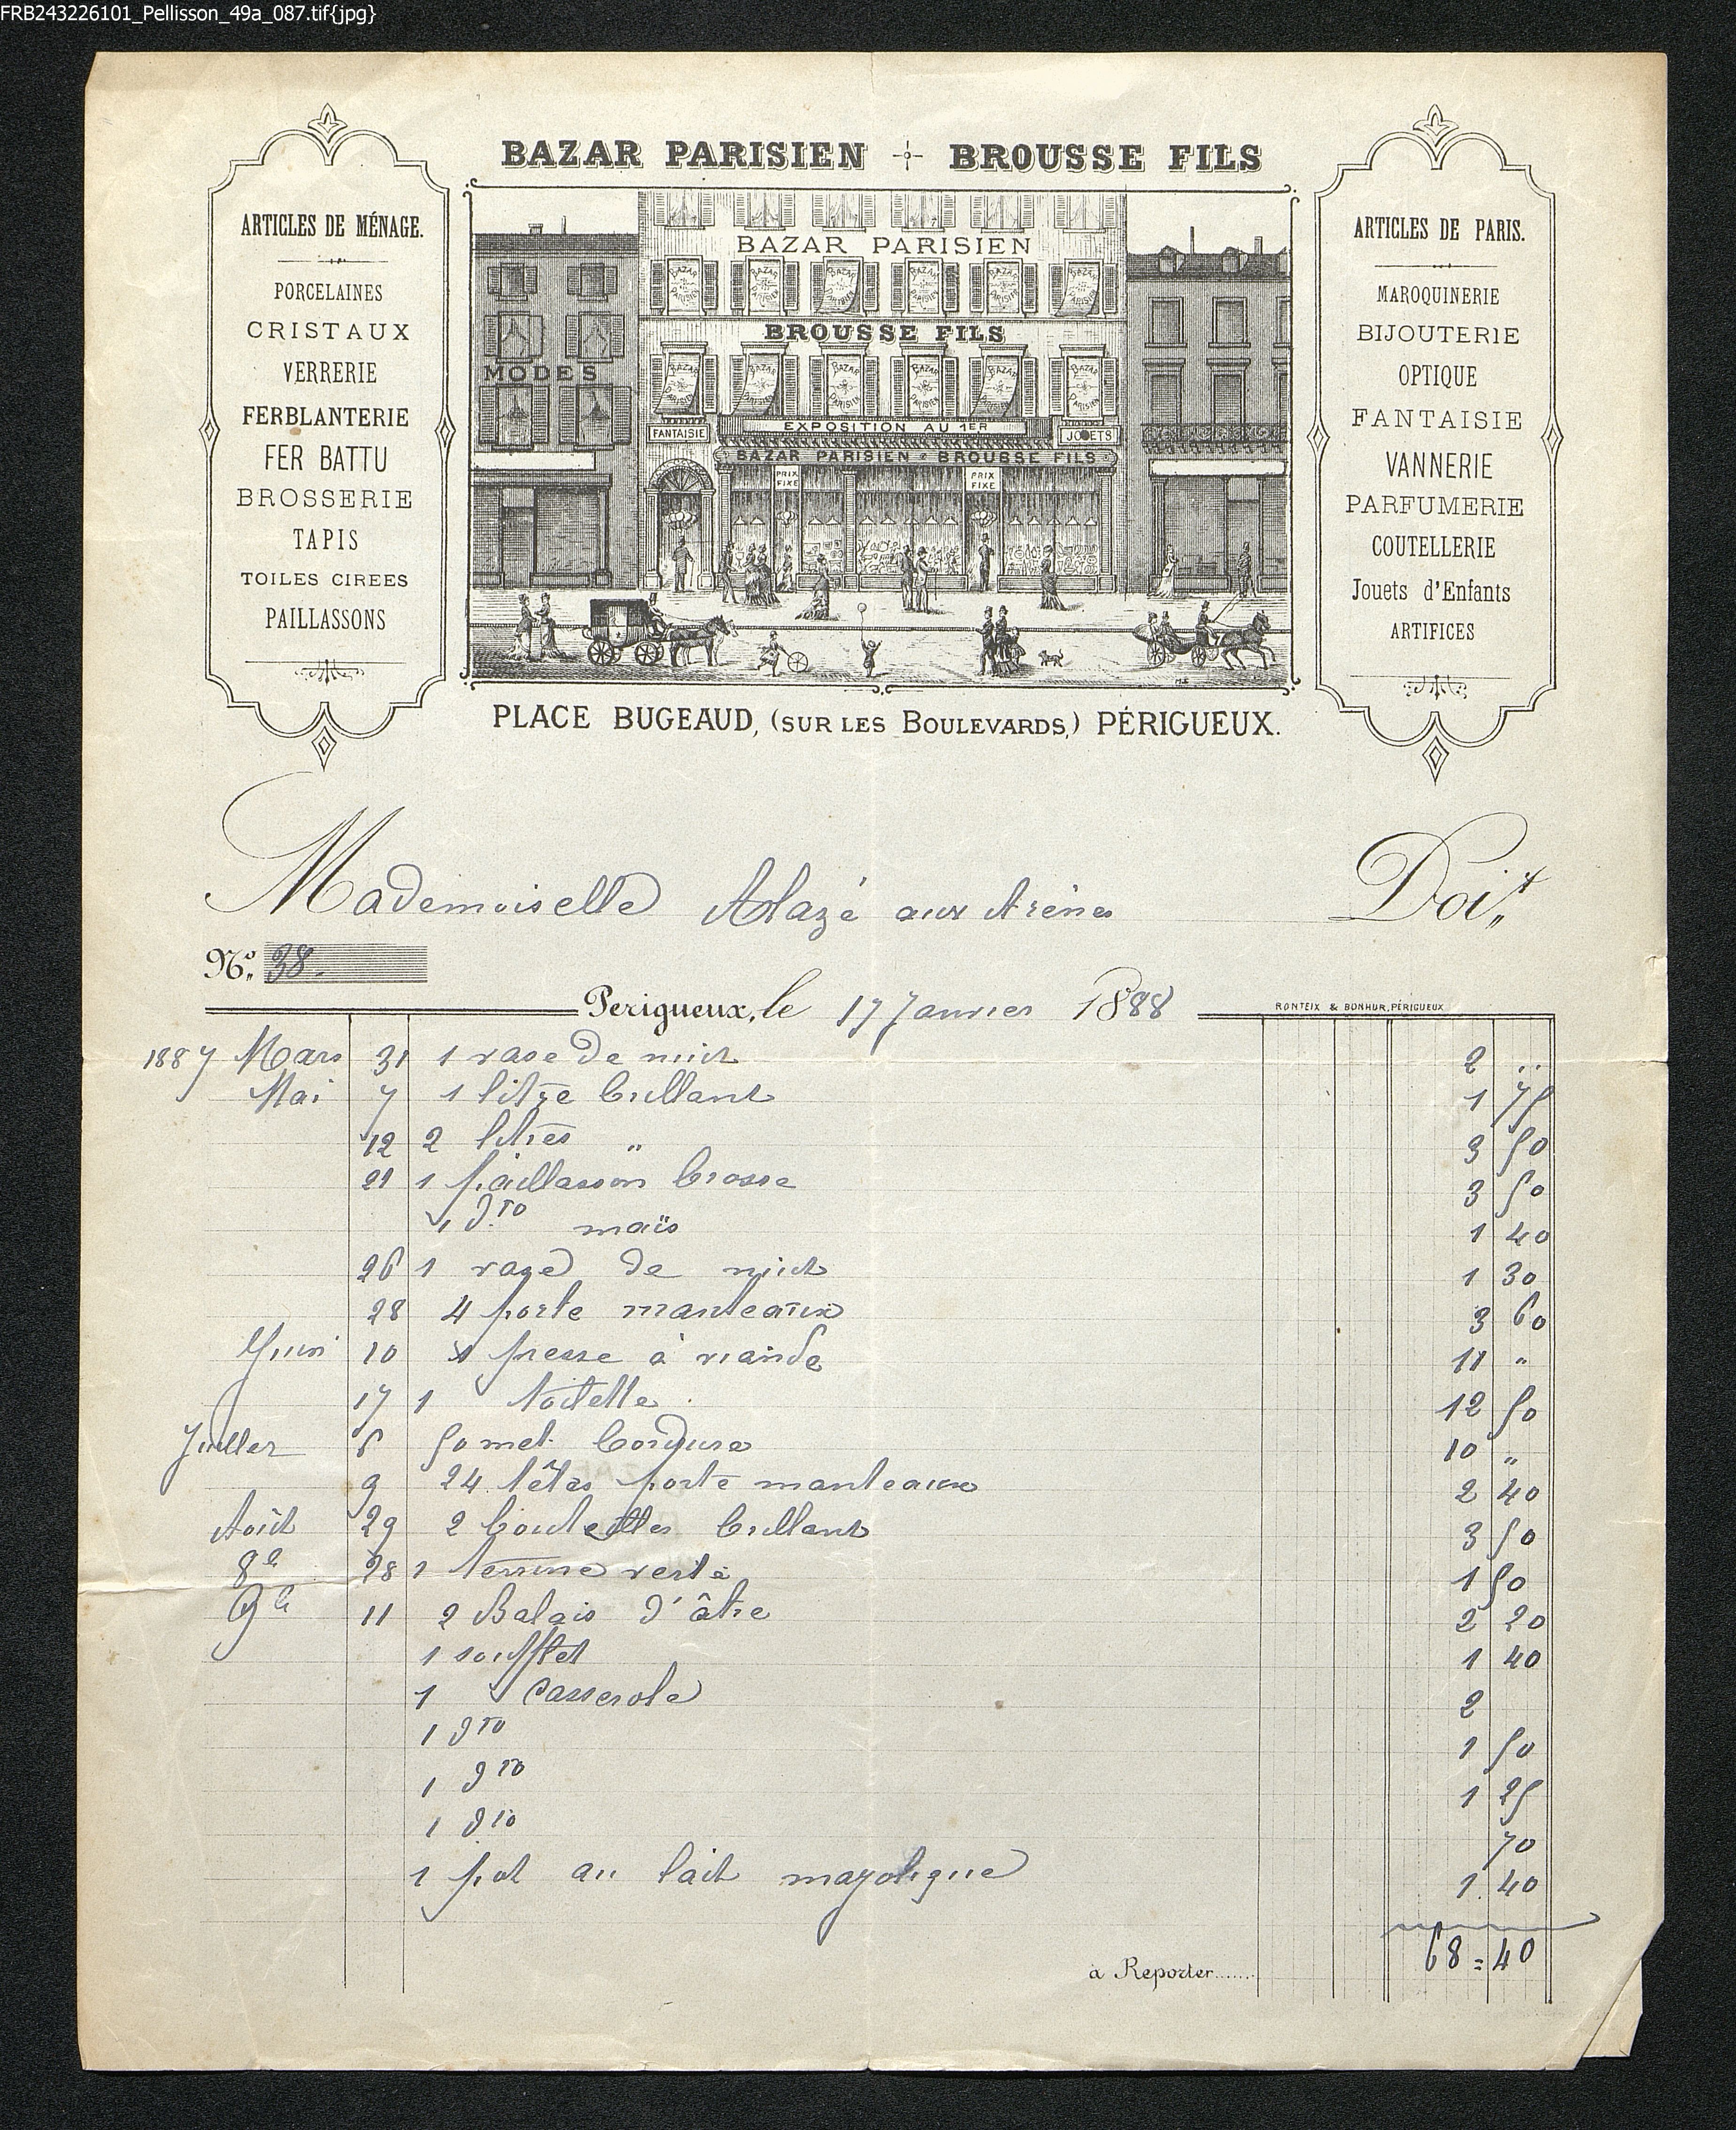 FRB243226101_Pellisson_49a_087.tif{jpg}
BAZAR PARISIEN BROUSSE FILS
ARTICLES DE MÉNAGE.
PORCELAINES
CRISTAUX
VERRERIE
FERBLANTERIE
FER BATTU
BROSSERIE
TAPIS
TOILES CIREES
PAILLASSONS
BAZAR PARISIEN
BROUSSE FILS
MODES
EXPOSITION AU 1ER
FANTAISIE
JOUETS
BAZAR PARISIEN BROUSSE FILS
PRIX FIXE
PRIX FIXE
ARTICLES DE PARIS.
MAROQUINERIE
BIJOUTERIE
OPTIQUE
FANTAISIE
VANNERIE
PARFUMERIE
COUTELLERIE
Jouets d'Enfants
ARTIFICES
PLACE BUGEAUD, (SUR LES BOULEVARDS,) PÉRIGUEUX.
Mademoiselle aux Arènes Doit
No. 38.
Perigueux, le 17 Janvier 1888
RONTEIX & BONHUR, PÉRIGUEUX
1887 Mars 31 1 vase de nuit 2 ..
Mai 7 1 litre brillant 1 75
12 2 litres " 3 50
21 1 paillasson brosse 3 50
1 dto maïs 1 40
26 1 vase de nuit 1 30
28 4 porte manteaux 3 60
Juin 10 1 presse à viande 11 "
17 1 12 50
Juillet 5 50 met. bordure 10 "
9 24 têtes porte manteaux 2 40
Août 29 2 bouteilles brillant 3 50
8e 28 1 terrine verte 1 50
9e 11 2 Balais d'âtre 2 20
1 soufflet 1 40
1 casserole 2
1 dto 1 50
1 dto 1 25
1 dto 70
1 pot au lait mayolique 1. 40
à Reporter....... 68=40